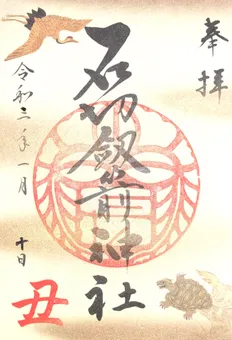 奉拝
石切劔箭神社
令和三年一月
十日
丑